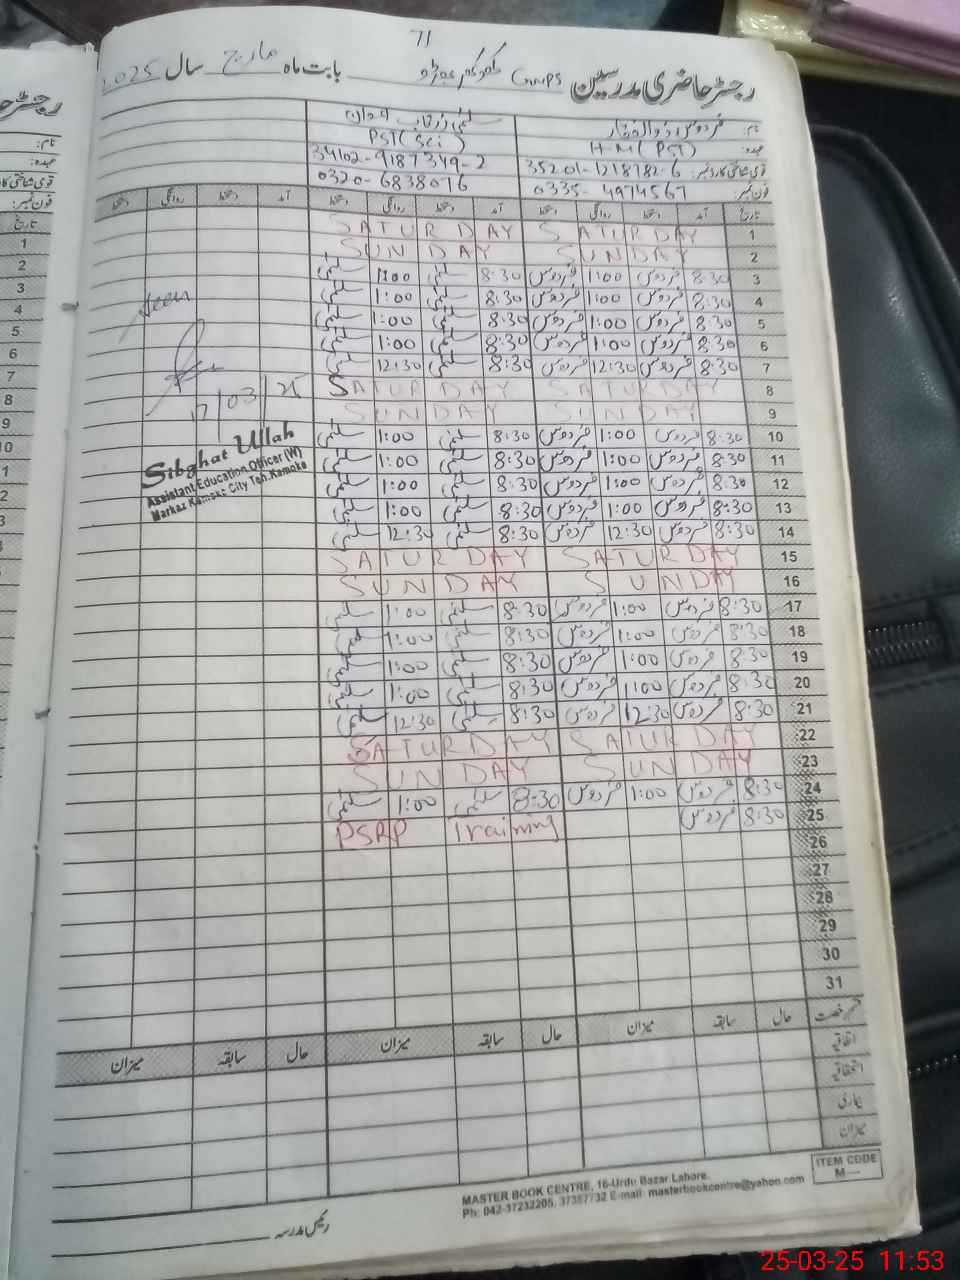 71
رجسٹر حاضری مدرسین GMPS بابت ماہ مارچ سال 2025
نام: فردوس ذوالفقار سلمیٰ
عہدہ: H-M (PST) PST (Sci)
قومی شناختی کارڈ نمبر: 34102-9187349-2
فون نمبر: 0335-4974567 0320-6838076
تاریخ آمد دستخط روانگی دستخط آمد دستخط روانگی دستخط آمد دستخط روانگی دستخط
1 SATURDAY SATURDAY
2 SUNDAY SUNDAY
3 8:30 فردوس 1:00 فردوس 8:30 سلمیٰ 1:00 سلمیٰ
4 8:30 فردوس 1:00 فردوس 8:30 سلمیٰ 1:00 سلمیٰ
5 8:30 فردوس 1:00 فردوس 8:30 سلمیٰ 1:00 سلمیٰ
6 8:30 فردوس 1:00 فردوس 8:30 سلمیٰ 1:00 سلمیٰ
7 8:30 فردوس 12:30 فردوس 8:30 سلمیٰ 12:30 سلمیٰ
8 SATURDAY SATURDAY
9 SUNDAY SUNDAY
10 8:30 فردوس 1:00 فردوس 8:30 سلمیٰ 1:00 سلمیٰ
11 8:30 فردوس 1:00 فردوس 8:30 سلمیٰ 1:00 سلمیٰ
12 8:30 فردوس 1:00 فردوس 8:30 سلمیٰ 1:00 سلمیٰ
13 8:30 فردوس 1:00 فردوس 8:30 سلمیٰ 1:00 سلمیٰ
14 8:30 فردوس 12:30 فردوس 8:30 سلمیٰ 12:30 سلمیٰ
15 SATURDAY SATURDAY
16 SUNDAY SUNDAY
17 8:30 فردوس 1:00 فردوس 8:30 سلمیٰ 1:00 سلمیٰ
18 8:30 فردوس 1:00 فردوس 8:30 سلمیٰ 1:00 سلمیٰ
19 8:30 فردوس 1:00 فردوس 8:30 سلمیٰ 1:00 سلمیٰ
20 8:30 فردوس 1:00 فردوس 8:30 سلمیٰ 1:00 سلمیٰ
21 8:30 فردوس 12:30 فردوس 8:30 سلمیٰ 12:30 سلمیٰ
22 SATURDAY SATURDAY
23 SUNDAY SUNDAY
24 8:30 فردوس 1:00 فردوس 8:30 سلمیٰ 1:00 سلمیٰ
25 8:30 فردوس PSRP Training
26
27
28
29
30
31
Seen
17/03/25
Sibghat Ullah
Assistant Education Officer (W)
Markaz Kamoke City Teh. Kamoke
قسم رخصت حال سابقہ میزان حال سابقہ میزان حال سابقہ میزان
اتفاقیہ
استحقاقیہ
بیماری
میزان
ITEM CODE
M—
MASTER BOOK CENTRE, 16-Urdu Bazar Lahore.
Ph: 042-37232205, 37357732 E-mail: masterbookcentre@yahoo.com
رئیس مدرسہ
رجسٹر حا
نام:
عہدہ:
قومی شناختی کارڈ
فون نمبر:
تاریخ
1
1
2
3
4
5
6
7
8
9
10
11
25-03-25 11:53